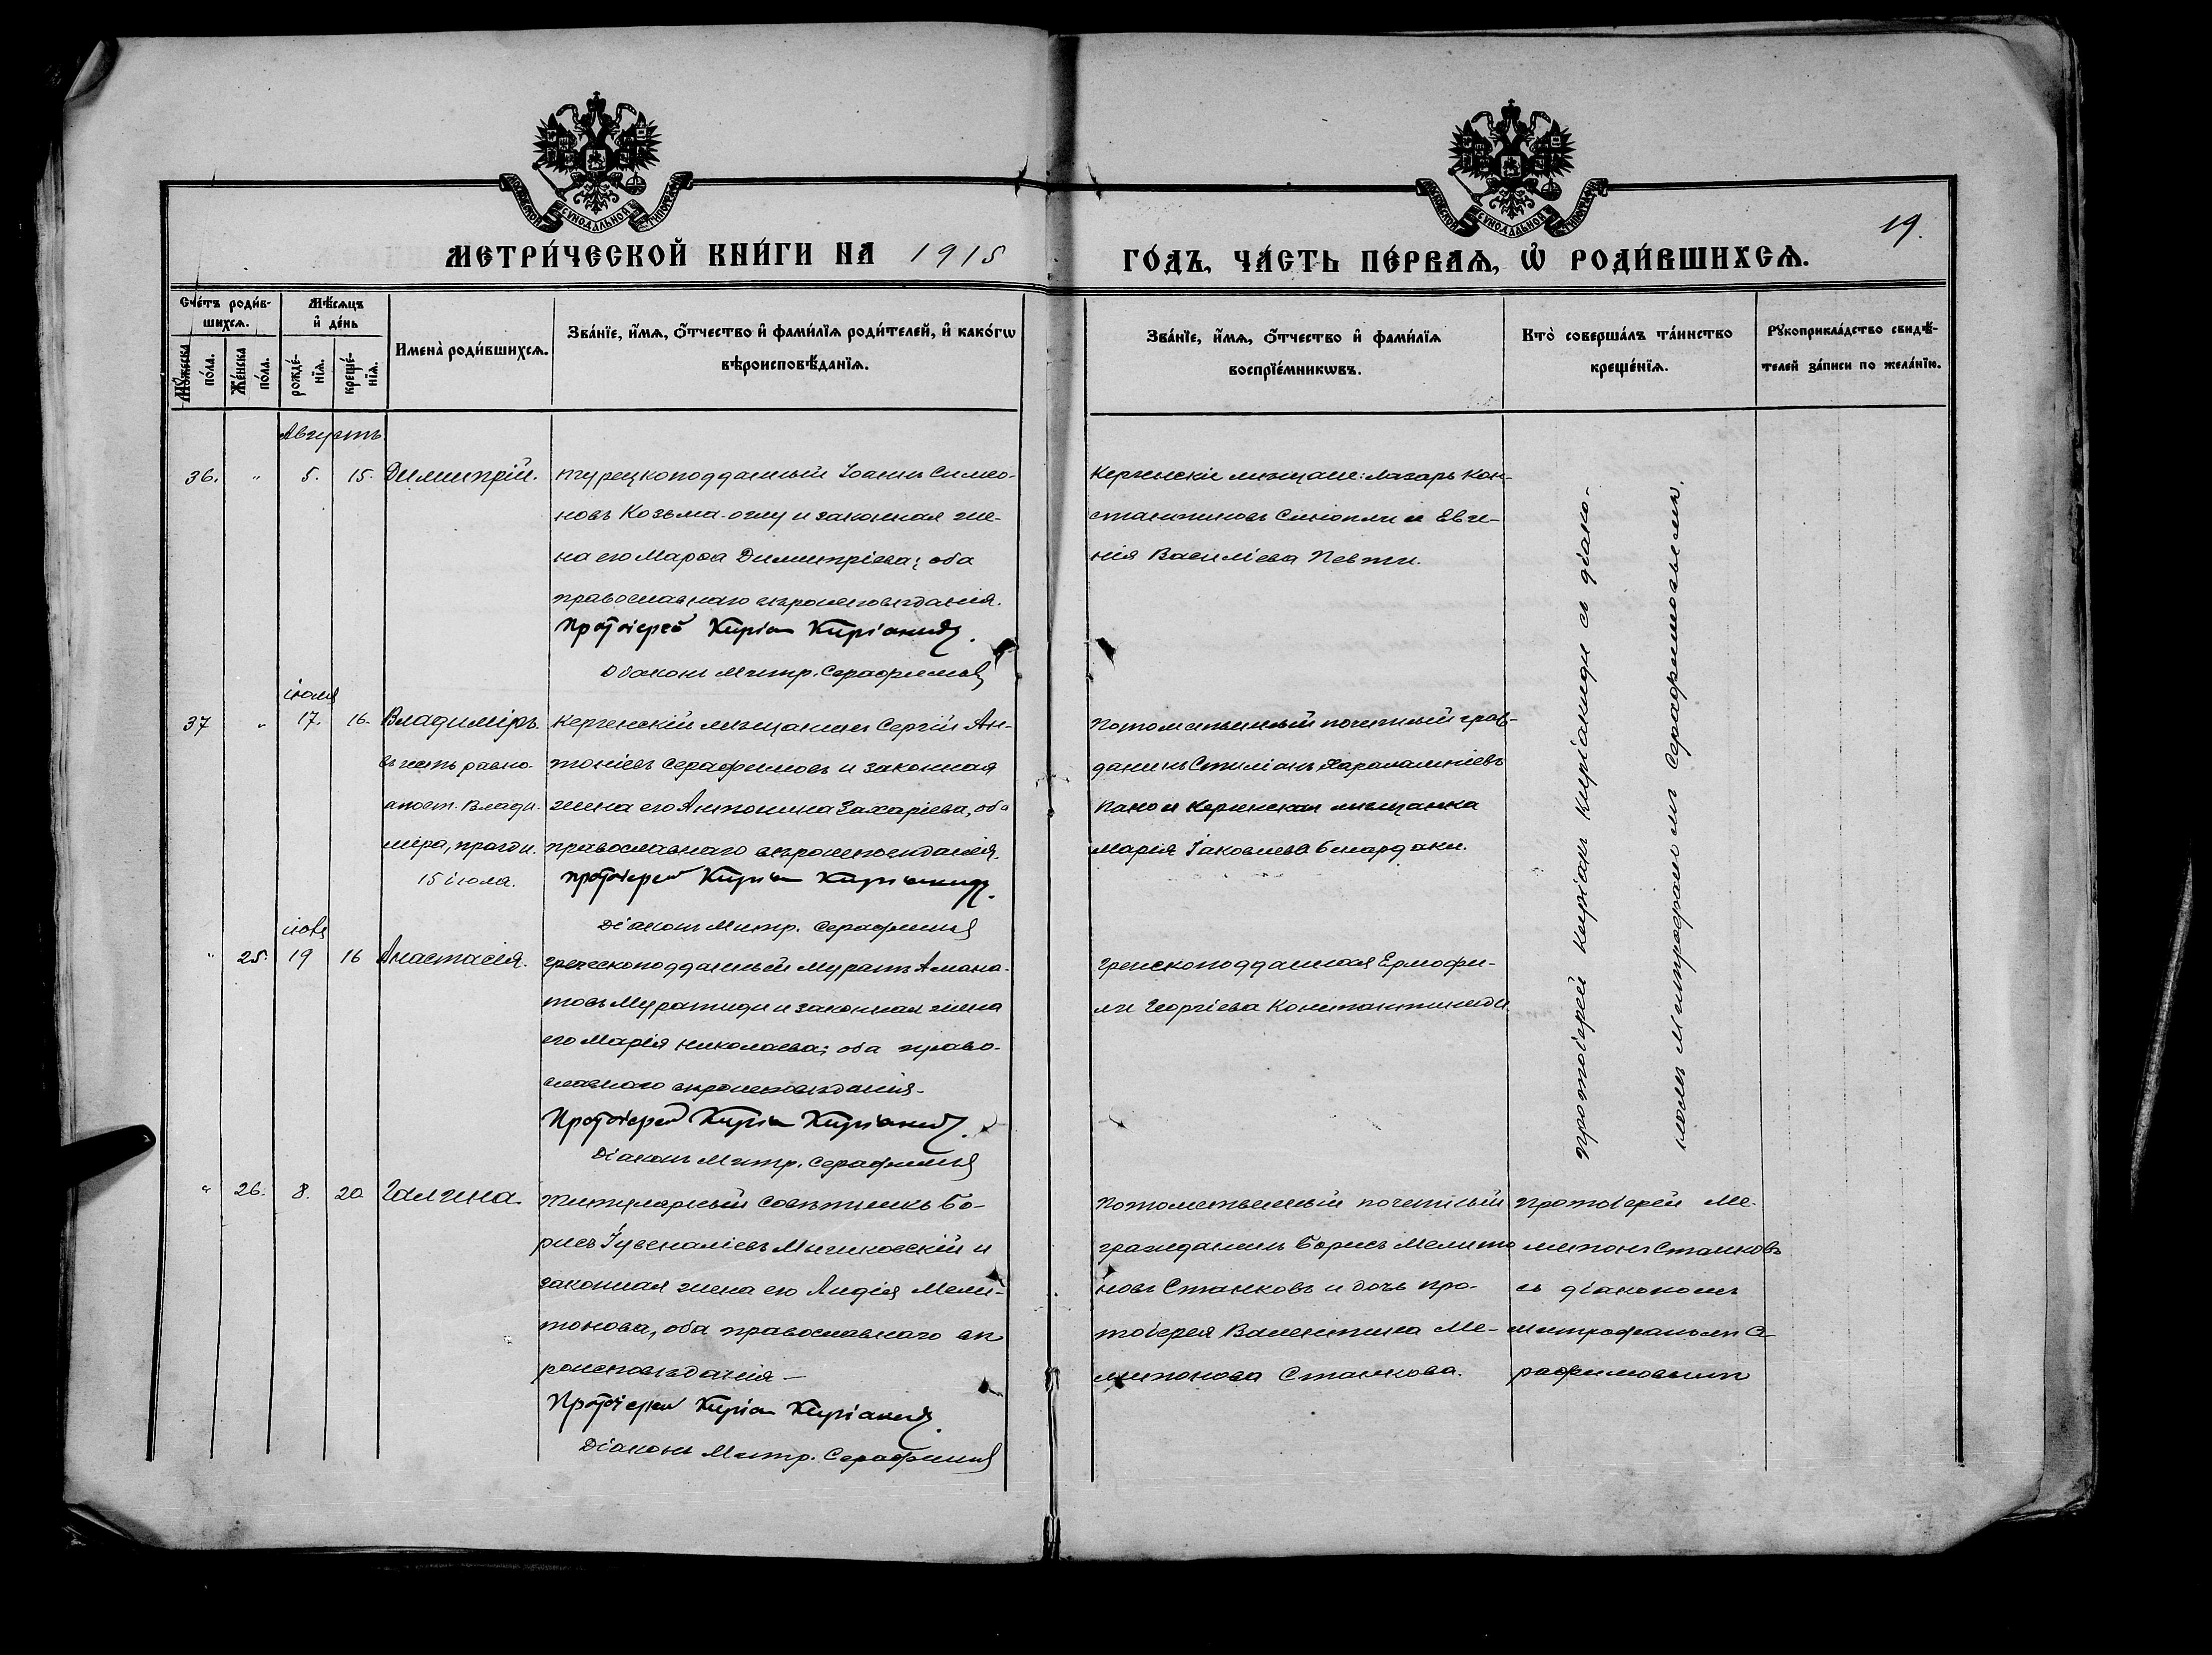 МОСКОВСКОЙ СѴНОДАЛЬНОЙ ТИПОГРАФІИ
МОСКОВСКОЙ СѴНОДАЛЬНОЙ ТИПОГРАФІИ
19.
МЕТРИ́ЧЕСКОЙ КНИ́ГИ НА 1915 ГО́ДЪ, ЧА́СТЬ ПЕ́РВАѦ, Ѡ҆ РОДИ́ВШИХСѦ.
Сче́тъ роди́в-
шихсѧ.
Мꙋ́жеска по́ла.
Же́нска по́ла.
Мѣ́сѧцъ
и҆ де́нь
рожде́-нїѧ.
креще́-нїѧ.
Имена̀ роди́вшихсѧ.
Зва́нїе, и҆́мѧ, ѻ҆́тчество и҆ фами́лїѧ роди́телей, и҆ како́гѡ
вѣроисповѣ́данїѧ.
Зва́нїе, и҆́мѧ, ѻ҆́тчество и҆ фами́лїѧ
воспрїе́мникѡвъ.
Кто̀ соверша́лъ та́инство
креще́нїѧ.
Рꙋкоприкла́дство свидѣ́-
телей за́писи по жела́нїю.
Августъ
36. " 5. 15. Димитрій.
турецкоподданный Іоаннъ Симео-
новъ Козьма-оглу и законная же-
на его Марѳа Димитріева; оба
православнаго вѣроисповѣданія.
Протоіерей Киріак Киріакиди.
Діаконъ Митр. Серафимовъ
Керченскіе мѣщане: Лазарь Кон-
стантиновъ Синопли и Евге-
нія Василіева Певти.
протоіерей Киріакъ Киріакиди съ діако-
номъ Митрофаномъ Серафимовымъ.
іюля
37 " 17. 16. Владиміръ.
въ честь равно-
апост. Влади-
міра, праздн.
15 іюля.
Керченскій мѣщанинъ Сергій Ан-
тоніевъ Серафимовъ и законная
жена его Антонина Захаріева, оба
православнаго вѣроисповѣданія.
протоіерей Киріак Киріакиди.
Діаконъ Митр. Серафимовъ
Потомственный почетный граж-
данинъ Стиліанъ Харалампіевъ
Пано и Керченская мѣщанка
Марія Іаковлева Бенардаки.
іюля
" 25. 19 16 Анастасія.
греческоподданный Муратъ Амана-
товъ Муратиди и законная жена
его Марія Николаева; оба право-
славнаго вѣроисповѣданія.
Протоіерей Киріак Киріакиди.
Діаконъ Митр. Серафимовъ
греческоподданная Ермофи-
ли Георгіева Константиниди.
" 26. 8. 20 Галина.
Титулярный Совѣтникъ Бо-
рисъ Іувеналіевъ Мычковскій и
законная жена его Лидія Мели-
тонова, оба православнаго вѣ-
роисповѣданія —
Протоіерей Киріак Киріакиди.
Діаконъ Митр. Серафимовъ
Потомственный почетный
гражданинъ Борисъ Мелито
новъ Станковъ и дочь про-
тоіерея Валентина Ме-
литонова Станкова.
Протоіерей Ме-
литонъ Станковъ
съ діакономъ
Митрофаномъ Се-
рафимовымъ